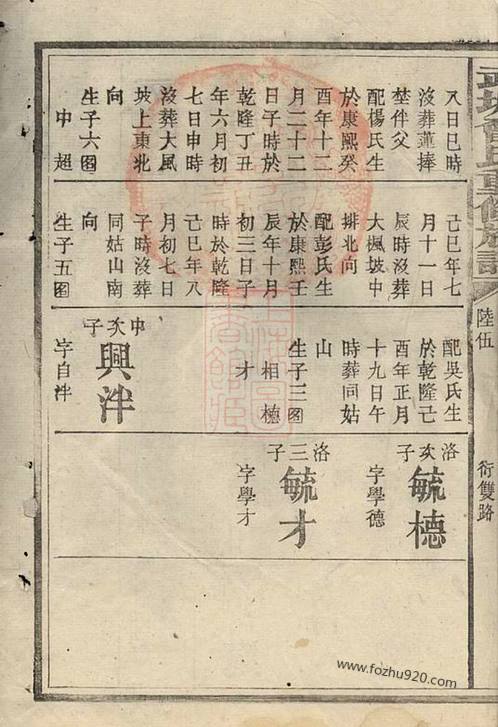 陸伍
衍雙路
又日巳時
沒葬蓮捧
埜伴父
配楊氏生
於康熙癸
酉年十二
月二十二
日子時於
乾隆丁丑
年六月初
七日申時
沒葬大風
坡上東北
向
生子六图
中超
己巳年七
月十一日
辰時沒葬
大楓坡中
排北向
配彭氏生
於康熙壬
辰年十月
初三日子
時於乾隆
己巳年八
月初七日
子時沒葬
同姑山南
向
生子五图
配吳氏生
於乾隆己
酉年正月
十九日午
時葬同姑
山
生子三图
相樁
才
中次子
興泮
字自泮
洛次子
毓樁
字學德
洛三子
毓才
字學才
www.fozhu920.com